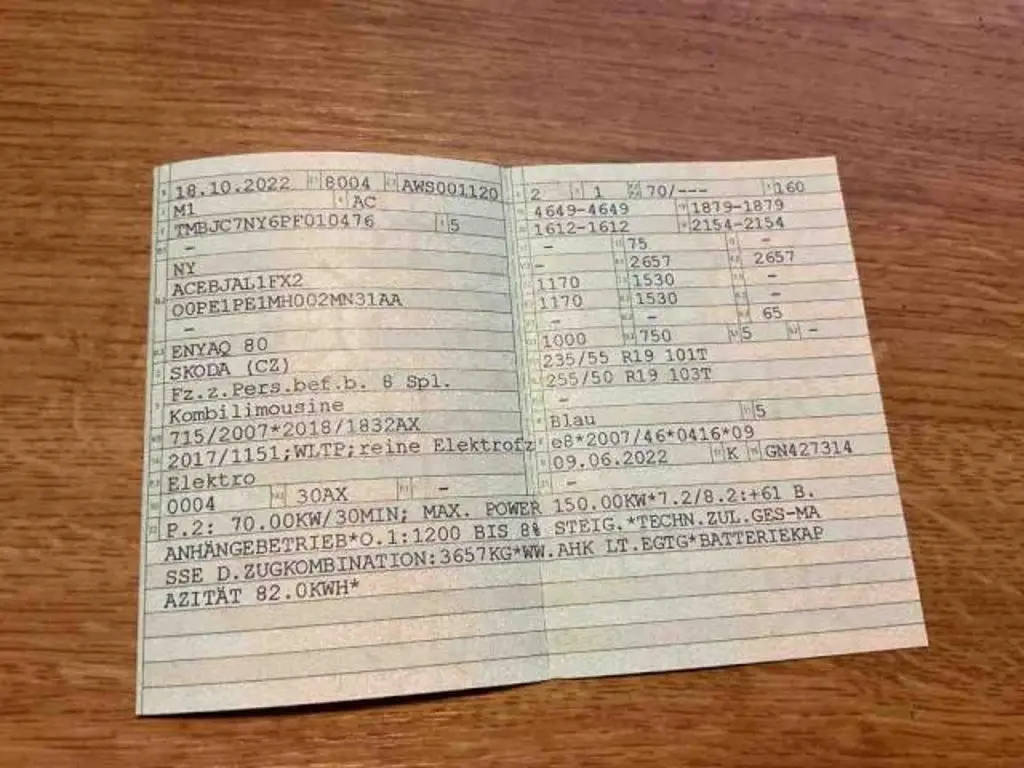 18.10.2022 8004 AWS001120
M1 AC
TMBJC7NY6PF010476 5
–
NY
ACEBJAL1FX2
00PE1PE1MH002MN31AA
–
ENYAQ 80
SKODA (CZ)
Fz.z.Pers.bef.b. 8 Spl.
Kombilimousine
715/2007*2018/1832AX
2017/1151;WLTP;reine Elektrofz
Elektro
0004 30AX –
2 1 70/--- 160
4649-4649 1879-1879
1612-1612 2154-2154
– 75 –
– 2657 2657
1170 1530 –
1170 1530 –
– – 65
1000 750 5 –
235/55 R19 101T
255/50 R19 103T
–
Blau 5
e8*2007/46*0416*09
09.06.2022 K GN427314
–
P.2: 70.00KW/30MIN; MAX. POWER 150.00KW*7.2/8.2:+61 B.
ANHÄNGEBETRIEB*O.1:1200 BIS 8% STEIG.*TECHN.ZUL.GES-MA
SSE D.ZUGKOMBINATION:3657KG*WW.AHK LT.EGTG*BATTERIEKAP
AZITÄT 82.0KWH*